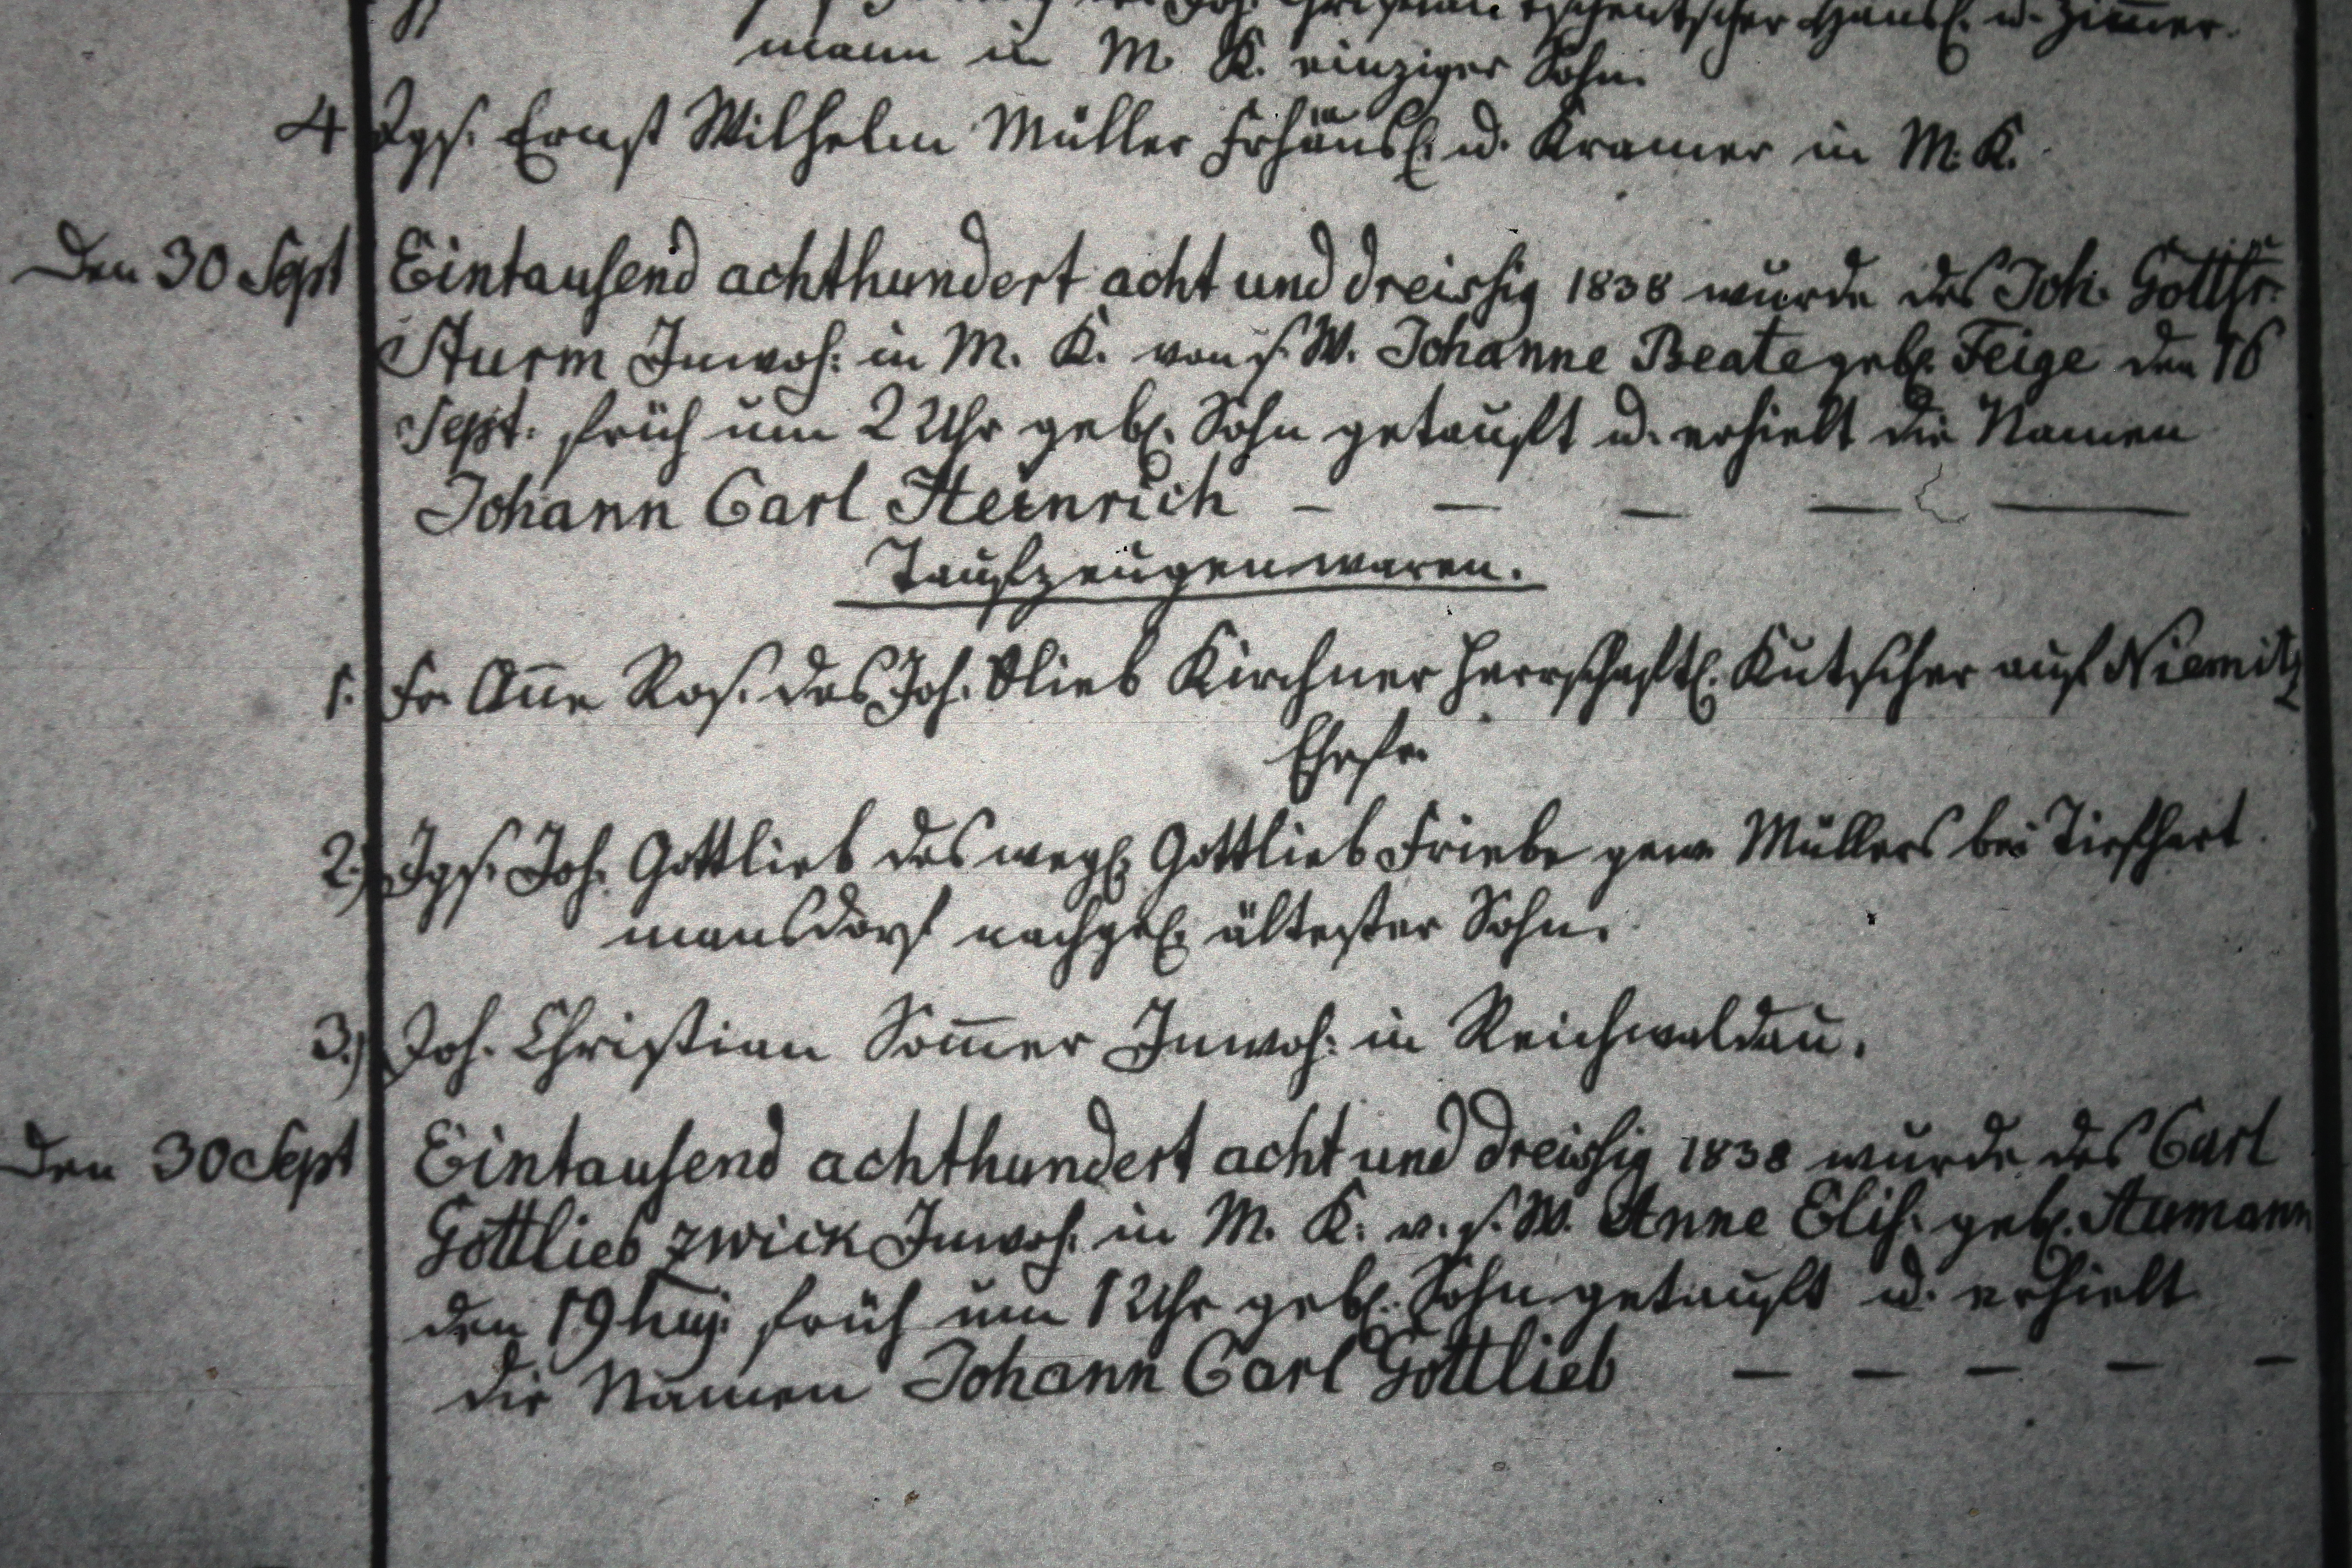 Joh. Christian Tschentscher Häusl. u. Zimmer-
mann in M. K. einziger Sohn.
4 Jgs. Ernst Wilhelm Müller Frhäusl. u. Kramer in M. K.
Den 30 Sept Eintausend achthundert acht und dreissig 1838 wurde des Joh. Gottfr.
Sturm Inwoh: in M. K. von s. W. Johanne Beate geb. Feige den 16
Sept. früh um 2 Uhr geb. Sohn getauft u. erhielt die Namen
Johann Carl Heinrich – – – – –
Taufzeugen waren.
1. Fr. Añe Ros. des Joh. Glieb Kirchner herrschaftl. Kutscher auf Niemitz
Ehefr.
2.) Jgs. Joh. Gottlieb des weyl. Gottlieb Friebe gew. Müllers bei Tiefhart
mansdorf nachgel. ältester Sohn.
3.) Joh. Christian Som̃er Inwoh: in Reichwaldau.
Den 30 Sept Eintausend achthundert acht und dreissig 1838 wurde des Carl
Gottlieb Zwick Inwoh. in M. K. v. s. W. Anne Elis. geb. Aumann
den 19 huj. früh um 1 Uhr geb. Sohn getauft u. erhielt
die Namen Johann Carl Gottlieb – – – – –